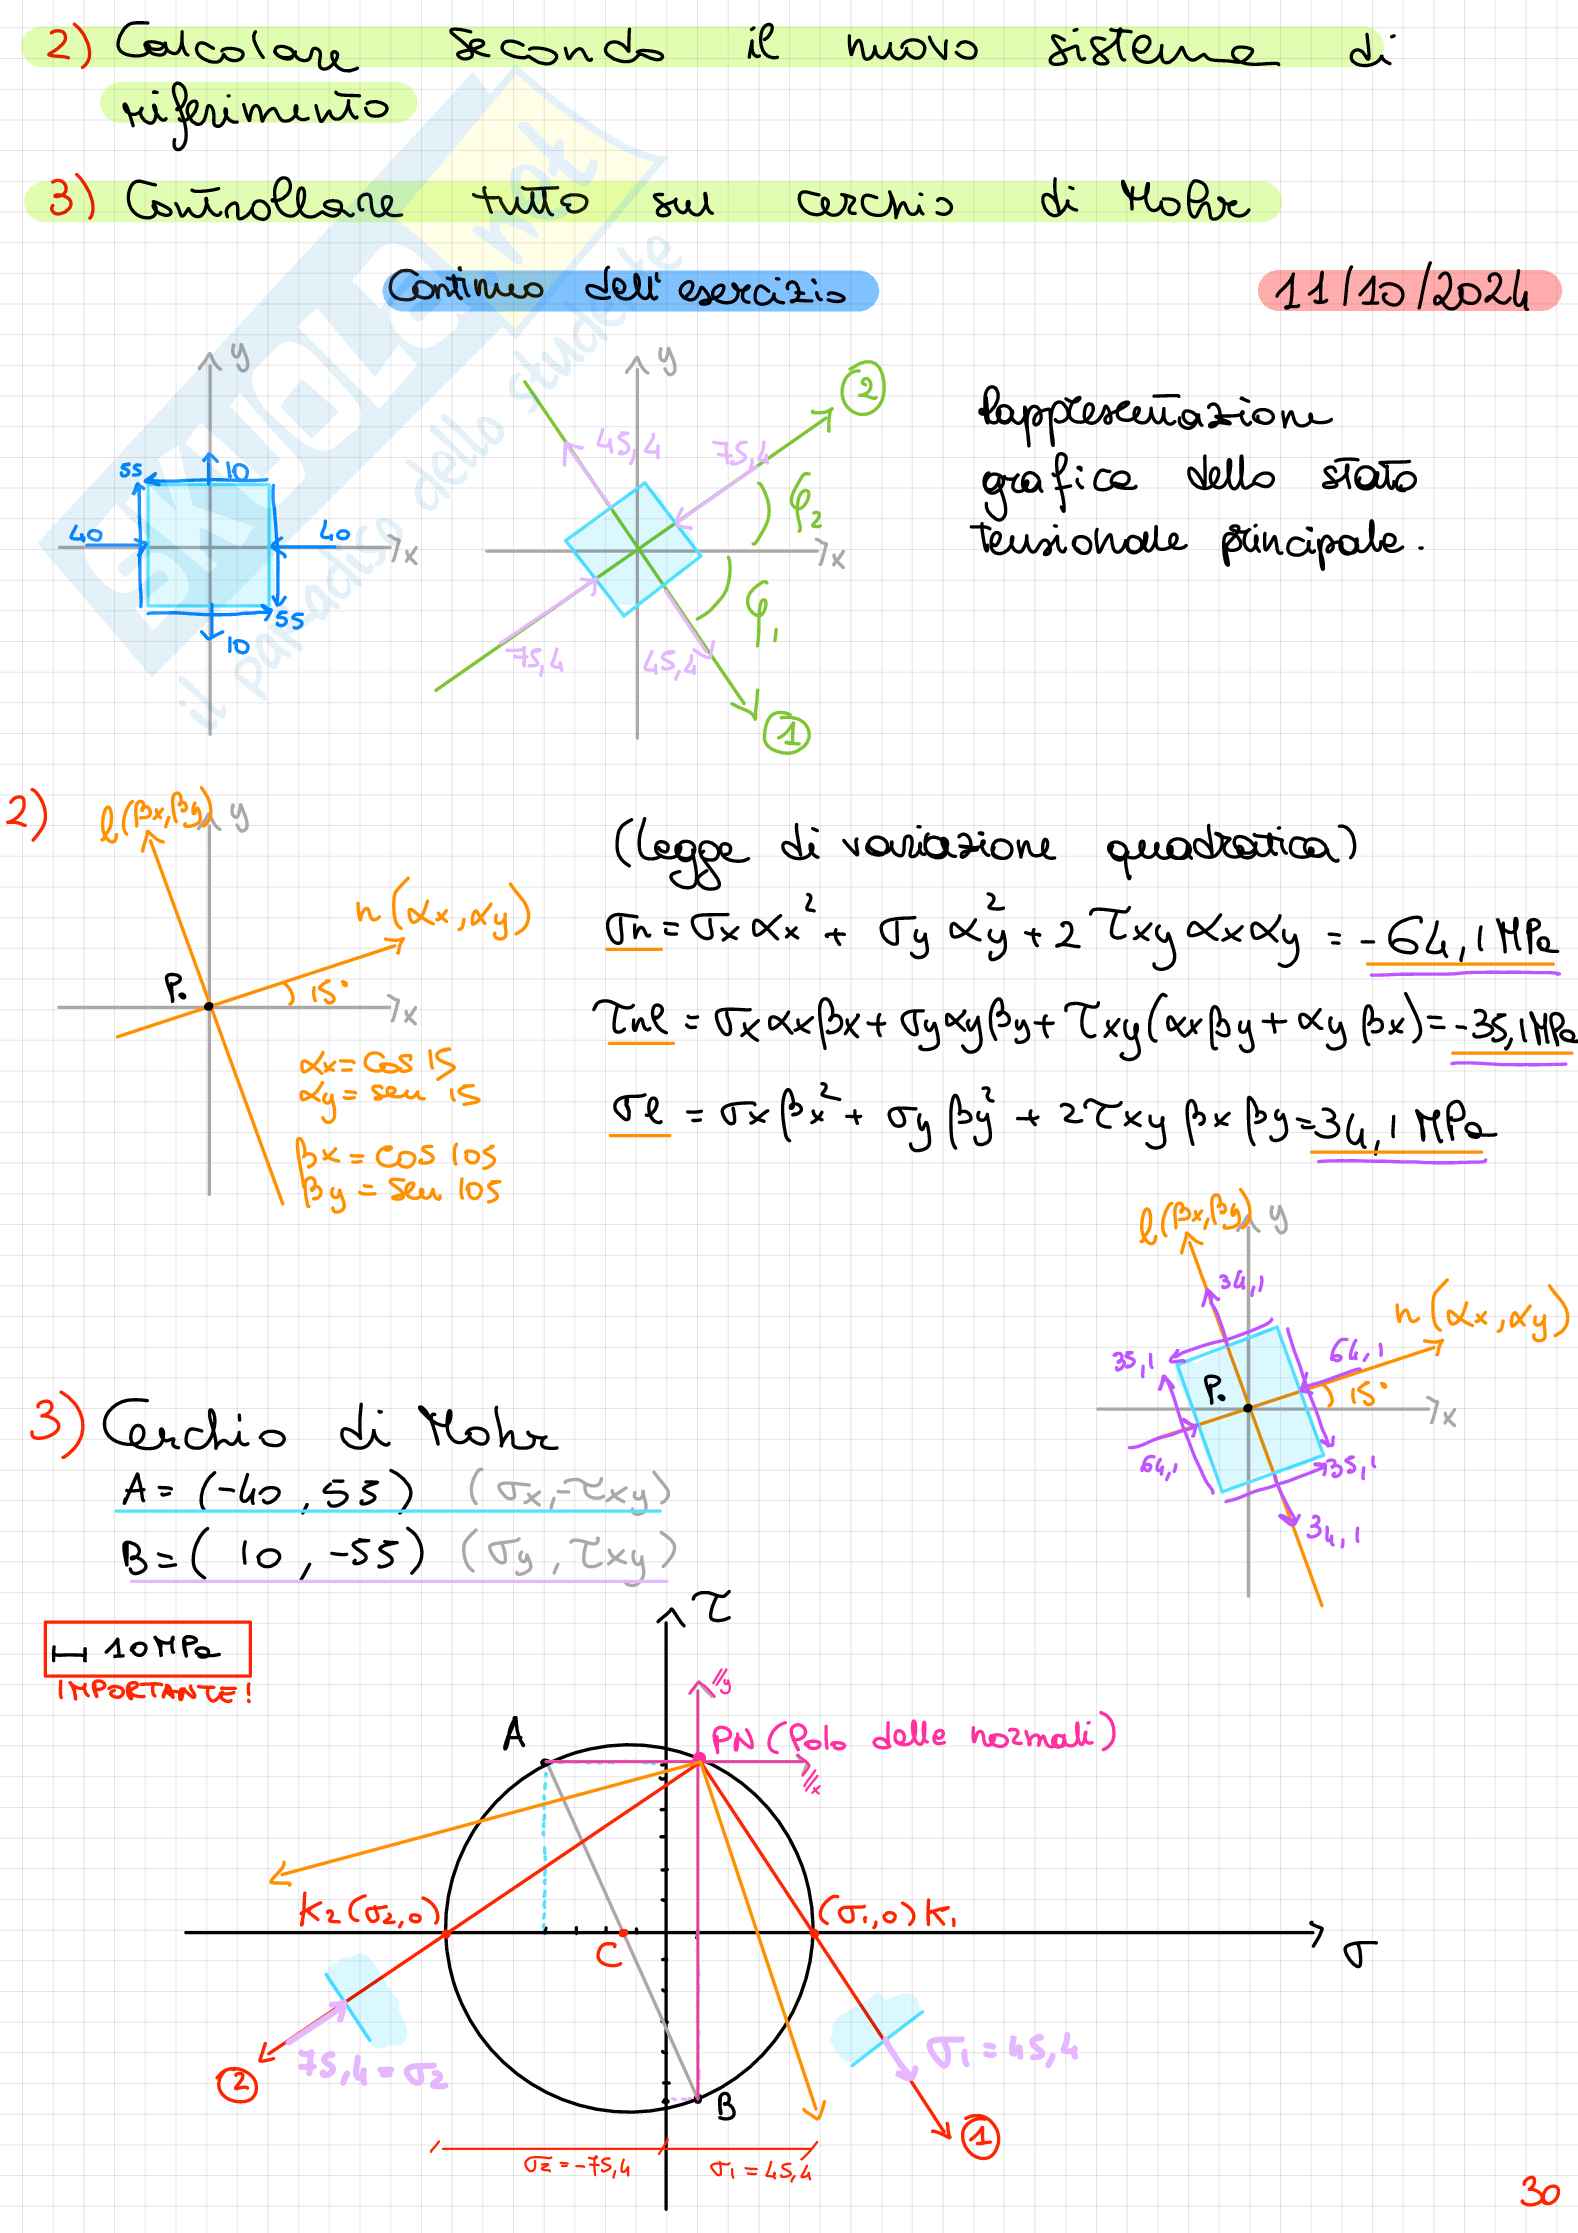 2) Calcolare secondo il nuovo sistema di
riferimento
3) Controllare tutto sul cerchio di Mohr
Continuo dell'esercizio
11/10/2024
y
55
10
40
40
x
55
10
y
2
45,4
75,4
φ2
x
φ1
75,4
45,4
1
Rappresentazione
grafica dello stato
tensionale principale.
SKUOLA.net
il paradiso dello studente
2)
l(βx,βy)
y
n(αx,αy)
P.
15°
x
αx = cos 15
αy = sen 15
βx = cos 105
βy = sen 105
(legge di variazione quadratica)
σn = σx αx² + σy αy² + 2 τxy αx αy = -64,1 MPa
τnl = σx αx βx + σy αy βy + τxy (αx βy + αy βx) = -35,1 MPa
σl = σx βx² + σy βy² + 2 τxy βx βy = 34,1 MPa
l(βx,βy)
y
34,1
n(αx,αy)
35,1
64,1
P.
15°
x
64,1
35,1
34,1
3) Cerchio di Mohr
A = (-40, 55) (σx, -τxy)
B = (10, -55) (σy, τxy)
10 MPa
IMPORTANTE!
τ
//y
A
PN (Polo delle normali)
//x
K2 (σ2,0)
(σ1,0) K1
C
σ
75,4 = σ2
σ1 = 45,4
2
B
1
σ2 = -75,4
σ1 = 45,4
30